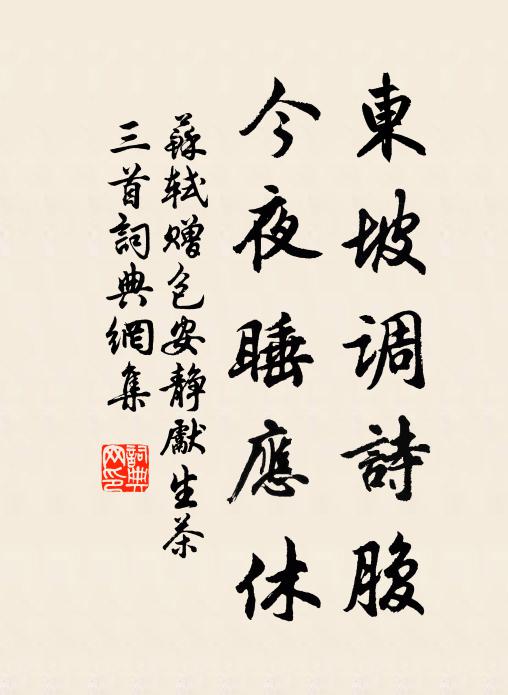 東坡調詩腹
今夜睡應休
蘇軾贈包安静獻生茶
三首詞典網集
詞典
网印